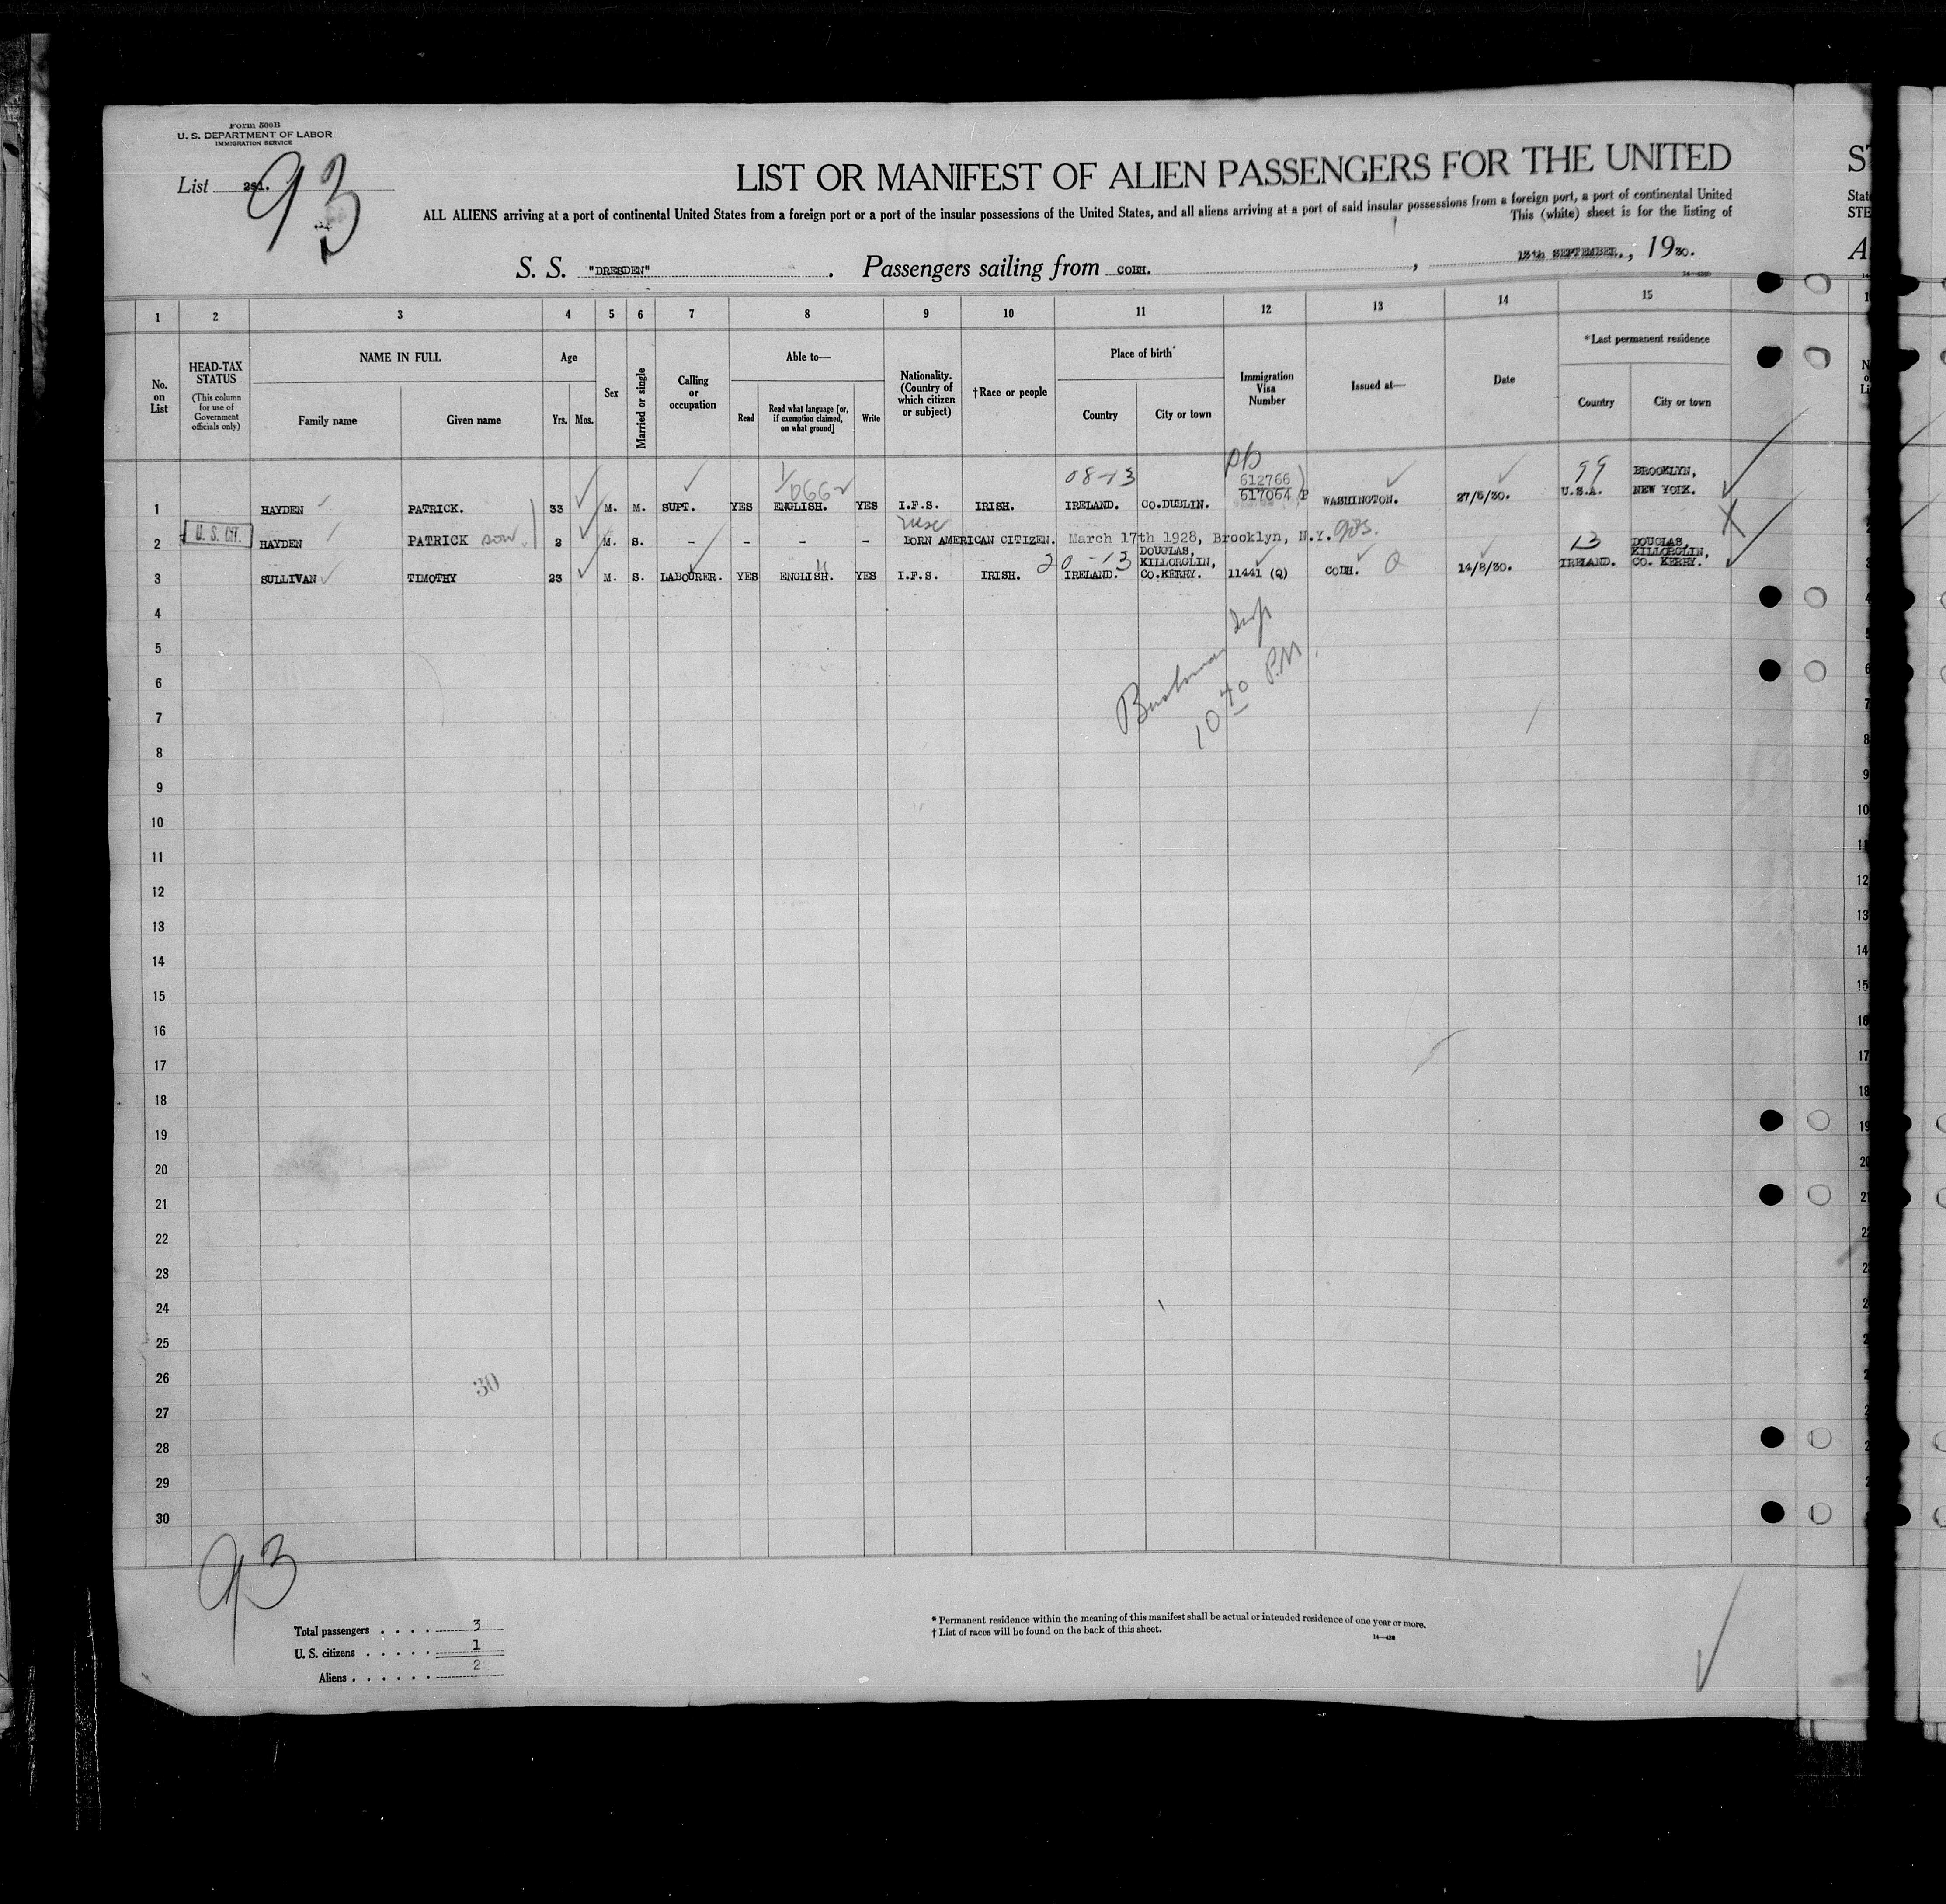 Form 500B
U. S. DEPARTMENT OF LABOR
IMMIGRATION SERVICE
List 93
LIST OR MANIFEST OF ALIEN PASSENGERS FOR THE UNITED
ALL ALIENS arriving at a port of continental United States from a foreign port or a port of the insular possessions of the United States, and all aliens arriving at a port of said insular possessions from a foreign port, a port of continental United
This (white) sheet is for the listing of
S. S. "DRESDEN" . Passengers sailing from COBH. , 13th SEPTEMBER. , 1930.
1 2 3 4 5 6 7 8 9 10 11 12 13 14 15
No. on List
HEAD-TAX STATUS
(This column for use of Government officials only)
NAME IN FULL
Family name Given name
Age
Yrs. Mos.
Sex
Married or single
Calling or occupation
Able to—
Read Read what language [or, if exemption claimed, on what ground] Write
Nationality. (Country of which citizen or subject)
†Race or people
Place of birth
Country City or town
Immigration Visa Number
Issued at—
Date
*Last permanent residence
Country City or town
08-13 612766 99 BROOKLYN,
1 HAYDEN PATRICK. 33 M. M. SUPT. YES ENGLISH. YES I.F.S. IRISH. IRELAND. CO.DUBLIN. 617064 P WASHINGTON. 27/5/30. U.S.A. NEW YORK.
2 U. S. CIT. HAYDEN PATRICK son 2 M. S. - - - - BORN AMERICAN CITIZEN. March 17th 1928, Brooklyn, N.Y.
20-13 DOUGLAS, KILLORGLIN, 13 DOUGLAS, KILLORGLIN,
3 SULLIVAN TIMOTHY 23 M. S. LABOURER. YES ENGLISH. YES I.F.S. IRISH. IRELAND. CO.KERRY. 11441 (Q) COBH. Q 14/8/30. IRELAND. CO. KERRY.
4
5
6
7
8
9
10
11
12
13
14
15
16
17
18
19
20
21
22
23
24
25
26
27
28
29
30
10 40 P.M.
30
93
Total passengers . . . . 3
U. S. citizens . . . . . 1
Aliens . . . . . . 2
* Permanent residence within the meaning of this manifest shall be actual or intended residence of one year or more.
† List of races will be found on the back of this sheet.